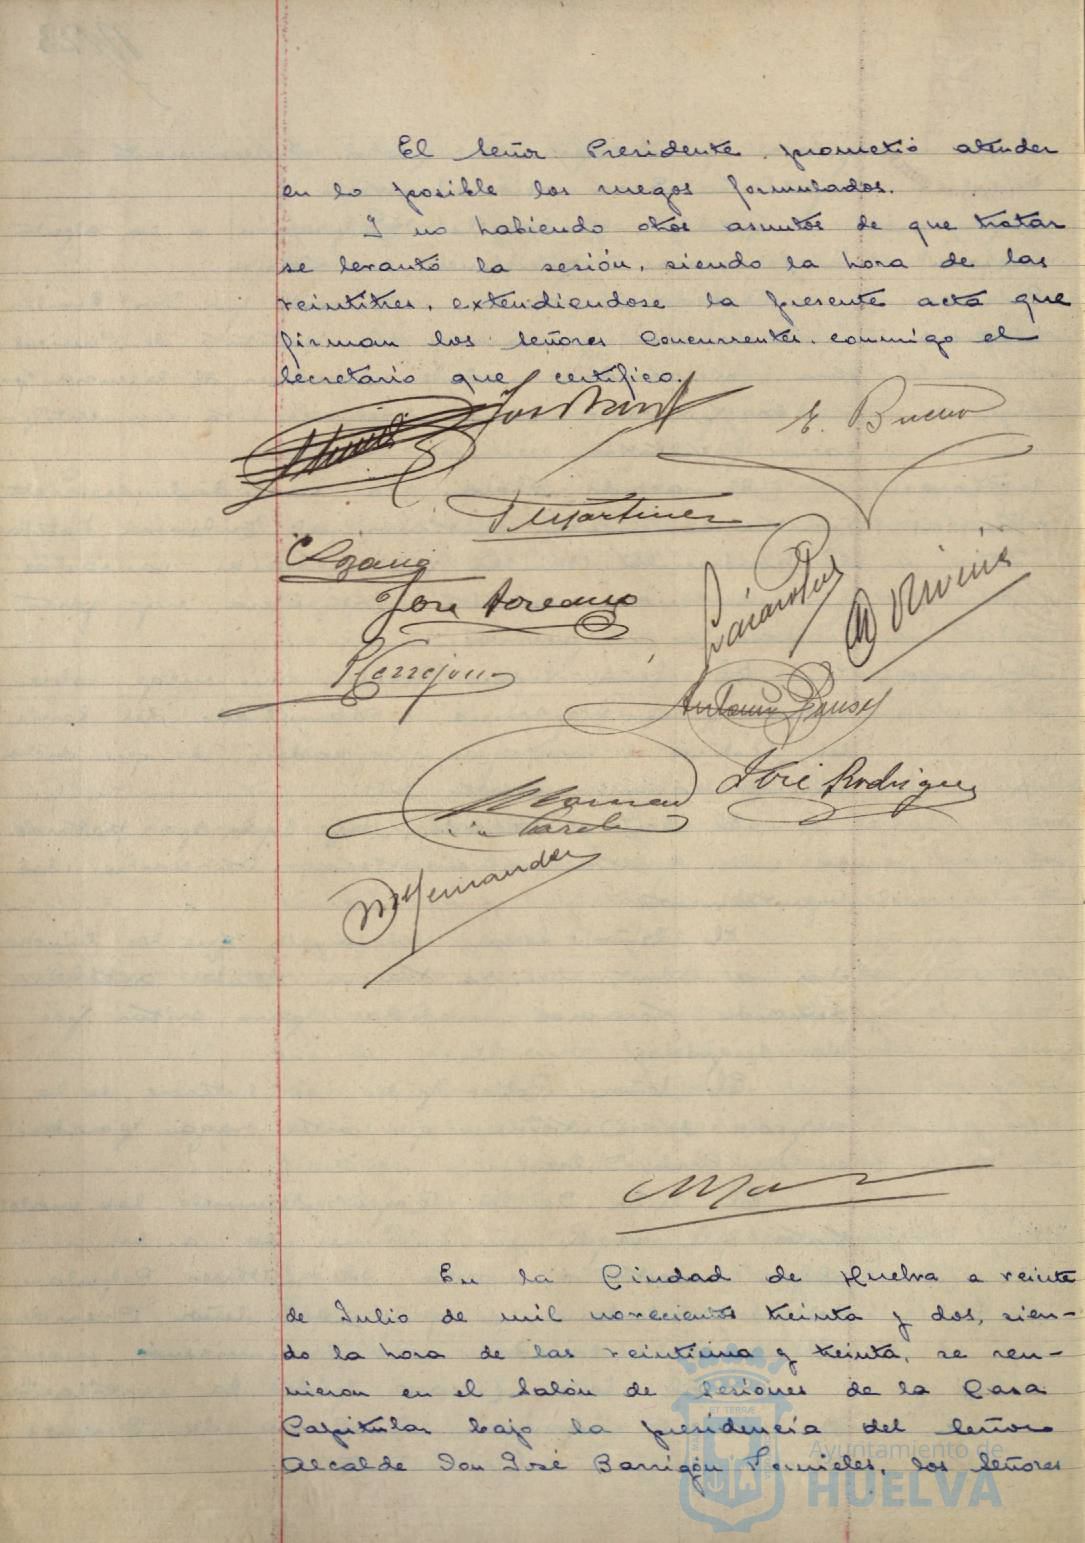 El Señor Presidente, prometió atender
en lo posible los ruegos formulados.
Y no habiendo otros asuntos de que tratar
se levantó la sesión, siendo la hora de las
veintitres, extendiendose la presente acta que
firman los señores Concurrentes, conmigo el
Secretario que certifico.
E. Bueno
Martinez
José
Terrejon
Antonio Pousa
José Rodriguez
Hernandez
En la Ciudad de Huelva a veinte
de Julio de mil novecientos treinta y dos, sien-
do la hora de las veintiuna y treinta, se reu-
nieron en el Salón de Sesiones de la Casa
Capitular bajo la presidencia del Señor
Alcalde Don José Barrigón Fornieles, los Señores
Ayuntamiento de
HUELVA